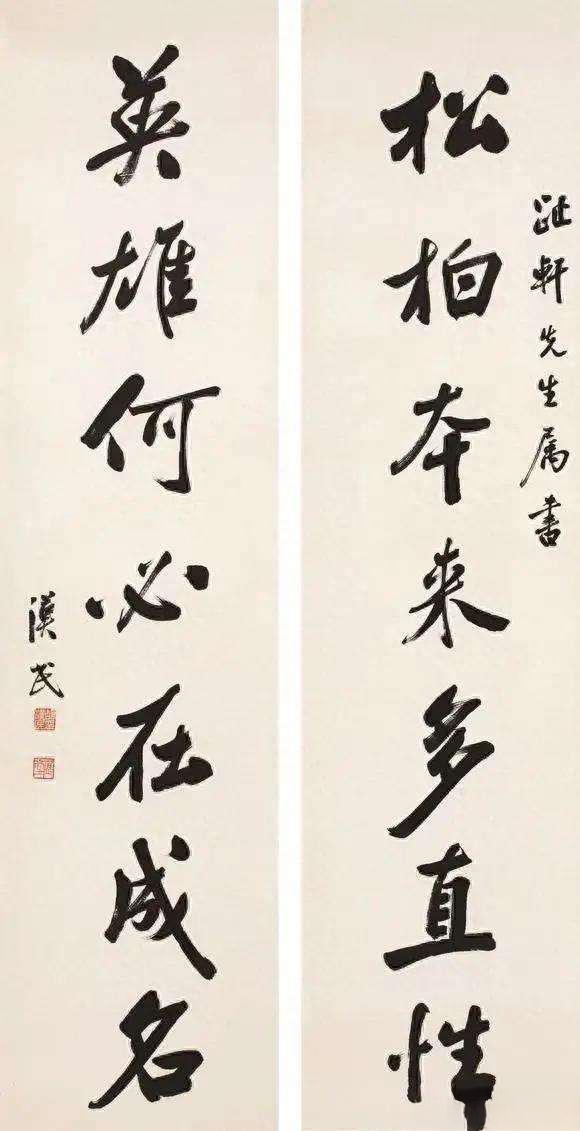 松柏本来多直性
轩先生属书
英雄何必在成名
漢民